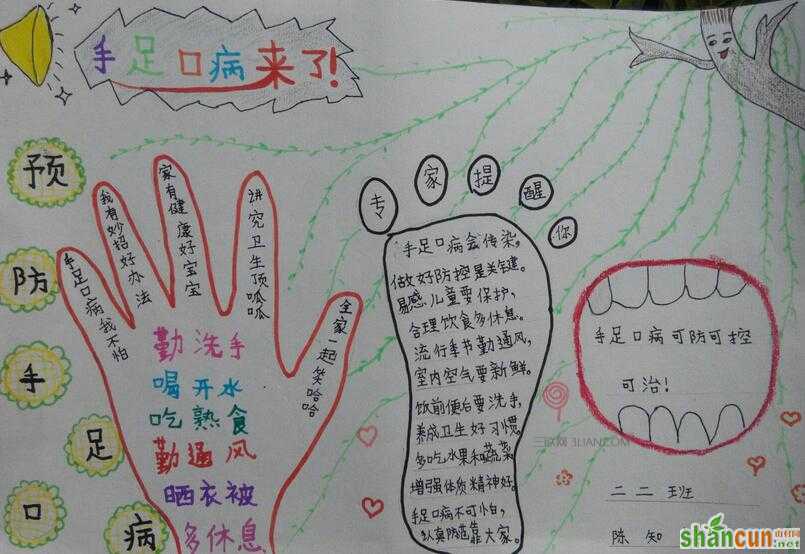 手足口病来了!
预
防
手
足
口
病
手足口病我不怕
我有妙招好办法
家有健康好宝宝
讲究卫生顶呱呱
全家一起笑哈哈
勤洗手
喝开水
吃熟食
勤通风
晒衣被
多休息
专家提醒你
手足口病会传染。
做好防控是关键。
易感儿童要保护,
合理饮食多休息。
流行季节勤通风,
室内空气要新鲜。
饮前便后要洗手,
养成卫生好习惯
多吃水果和蔬菜
增强体质精神好。
手足口病不可怕,
认真防范靠大家。
手足口病可防可控
可治!
三联网 3LIAN.COM
二二班
陈知
shancun
山村网
.net